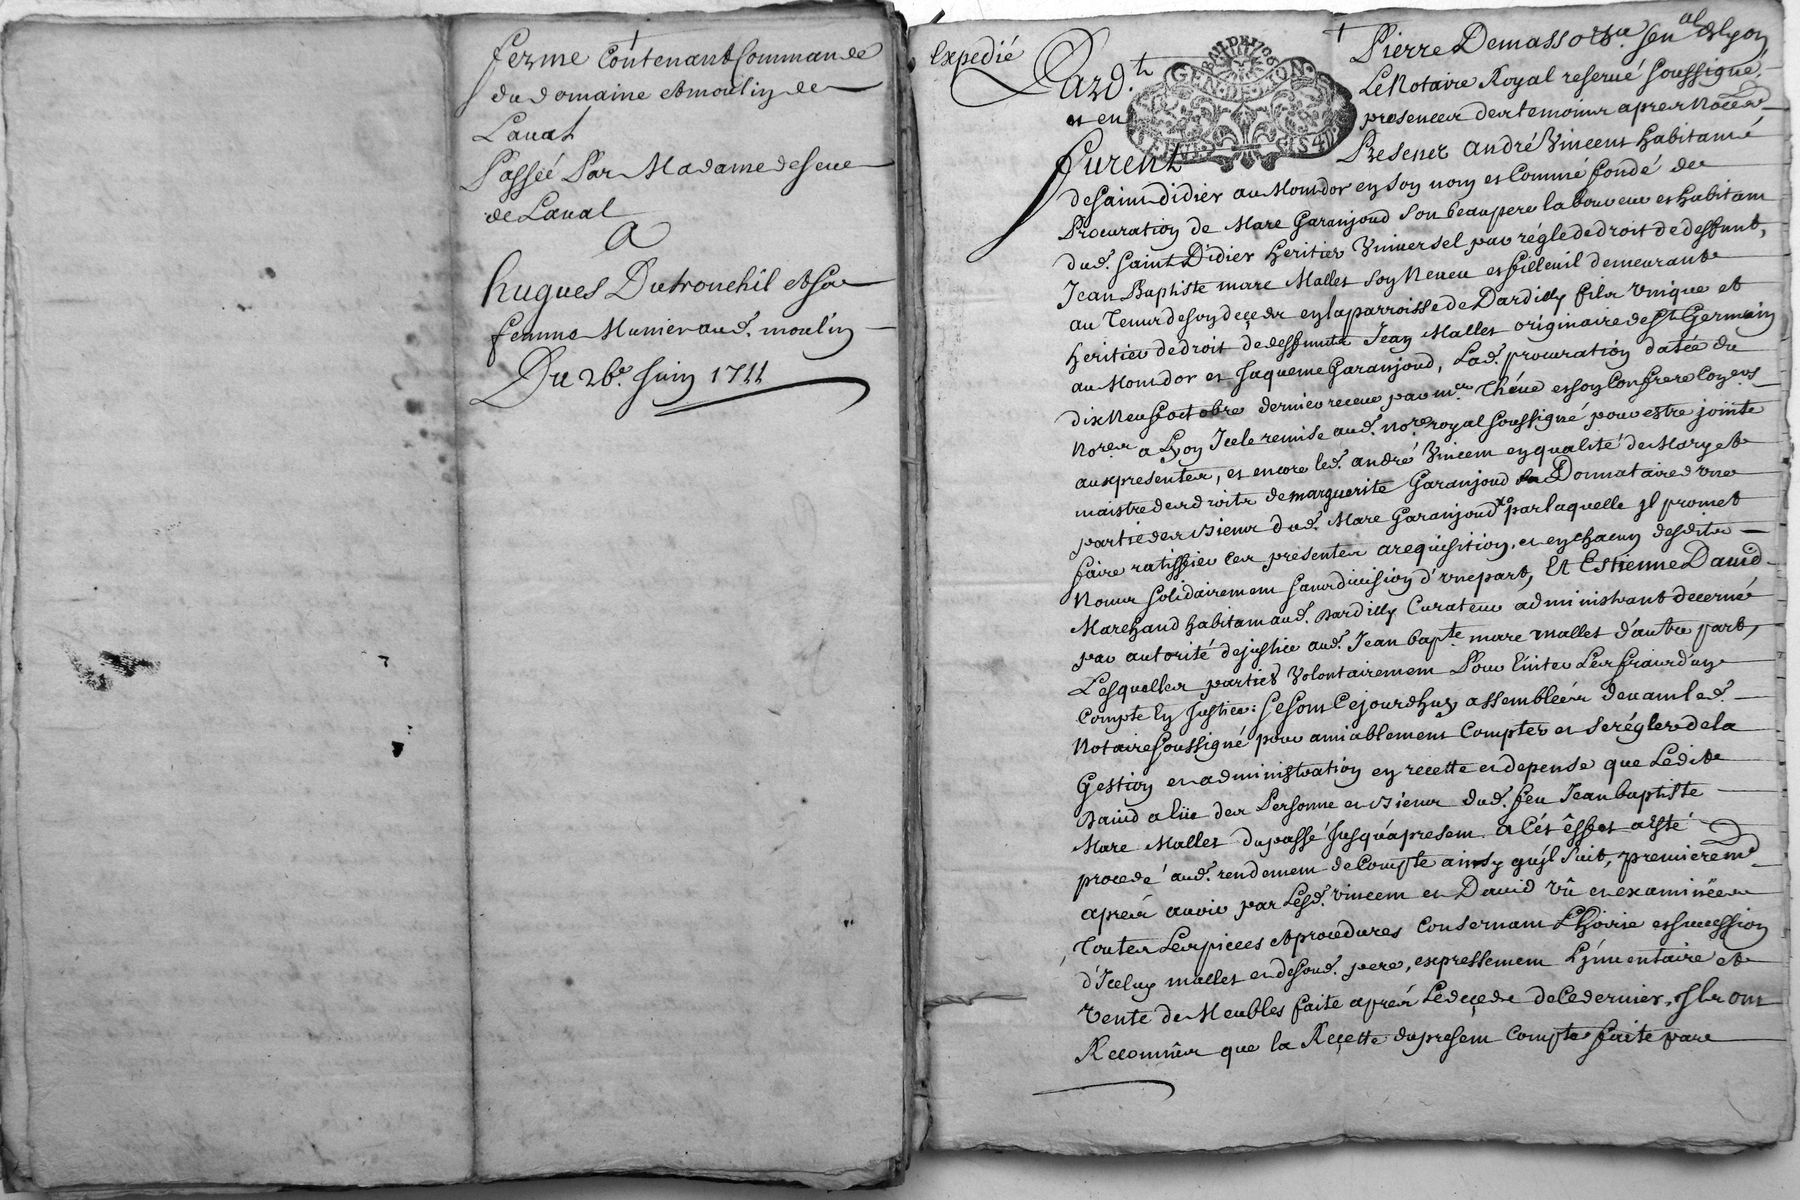 ferme Contenant Commande
du domaine et moulin de
Laval
Passée Par Madame deseve
de Laval
A
hugues Dutronchil et sa
femme Munier aud. moulin
Du 26e. Juin 1711
Expedié
Pard.t
et en
furent
GEN. DE LYON
Pierre Demasso sen.al de Lyon
Le Notaire Royal reservé soussigné,
presences des temoins apres Nommés
Presens André Vincent habitant
de saint didier au Montdor en son nom et Comme fondé de
Procuration de Marc Garanjoud son beaupere laboureur et habitant
dud. saint Didier heritier Universel par régle de droit de deffunt,
Jean Baptiste marc Mallet son Neveu et filleuil demeurant
au Temps de son deceds en la parroisse de Dardilly fils Unique et
heritier de droit de deffunts Jean Mallet originaire de St Germain
au Montdor et Jaqueme Garanjoud, Lad. procuration datée du
dix Neuf octobre dernier receue par me. Théve et son Confrere Con.ers
No.res a Lyon Icele remise aud. No.re royal soussigné pour estre jointe
aux presentes, et encore led. andré Vincent en qualité de Mary et
maistre des droits de marguerite Garanjoud Donnataire d'une
partie des biens dud. Marc Garanjoud par laquelle il promet
faire ratiffier ces presentes a requisition, et en chacun desdits
Noms solidairement sans division d'une part, Et Estienne David
Marchand habitant aud. Dardilly Curateur administrant decerné
par autorité de justice aud. Jean bap.te marc mallet d'autre part,
Lesquelles parties Volontairement Pour Eviter Les frais d'un
Compte En Justice: se sont Cejourdhuy assemblées devant led.
Notaire soussigné pour amiablement Compter et se régler de la
Gestion et administration en recette et depense que Ledit
David a liüe des Personne et biens dud. feu Jean baptiste
Marc Mallet du passé Jusqu'a present a Cét êffet a esté
procedé aud. rendement de Compte ainsy qu'il suit, premierem.t
aprés avoir par Lesd. Vincent et David vû et examinées
Toutes Les pieces et procedures Consernant L'hoirie et succession
d'Iceluy mallet et de sond. pere, expressement L'inventaire et
vente de Meubles faite aprés Le deçeds de Ce dernier, Ils ont
Reconnûs que la Reçette du present Compte faite par